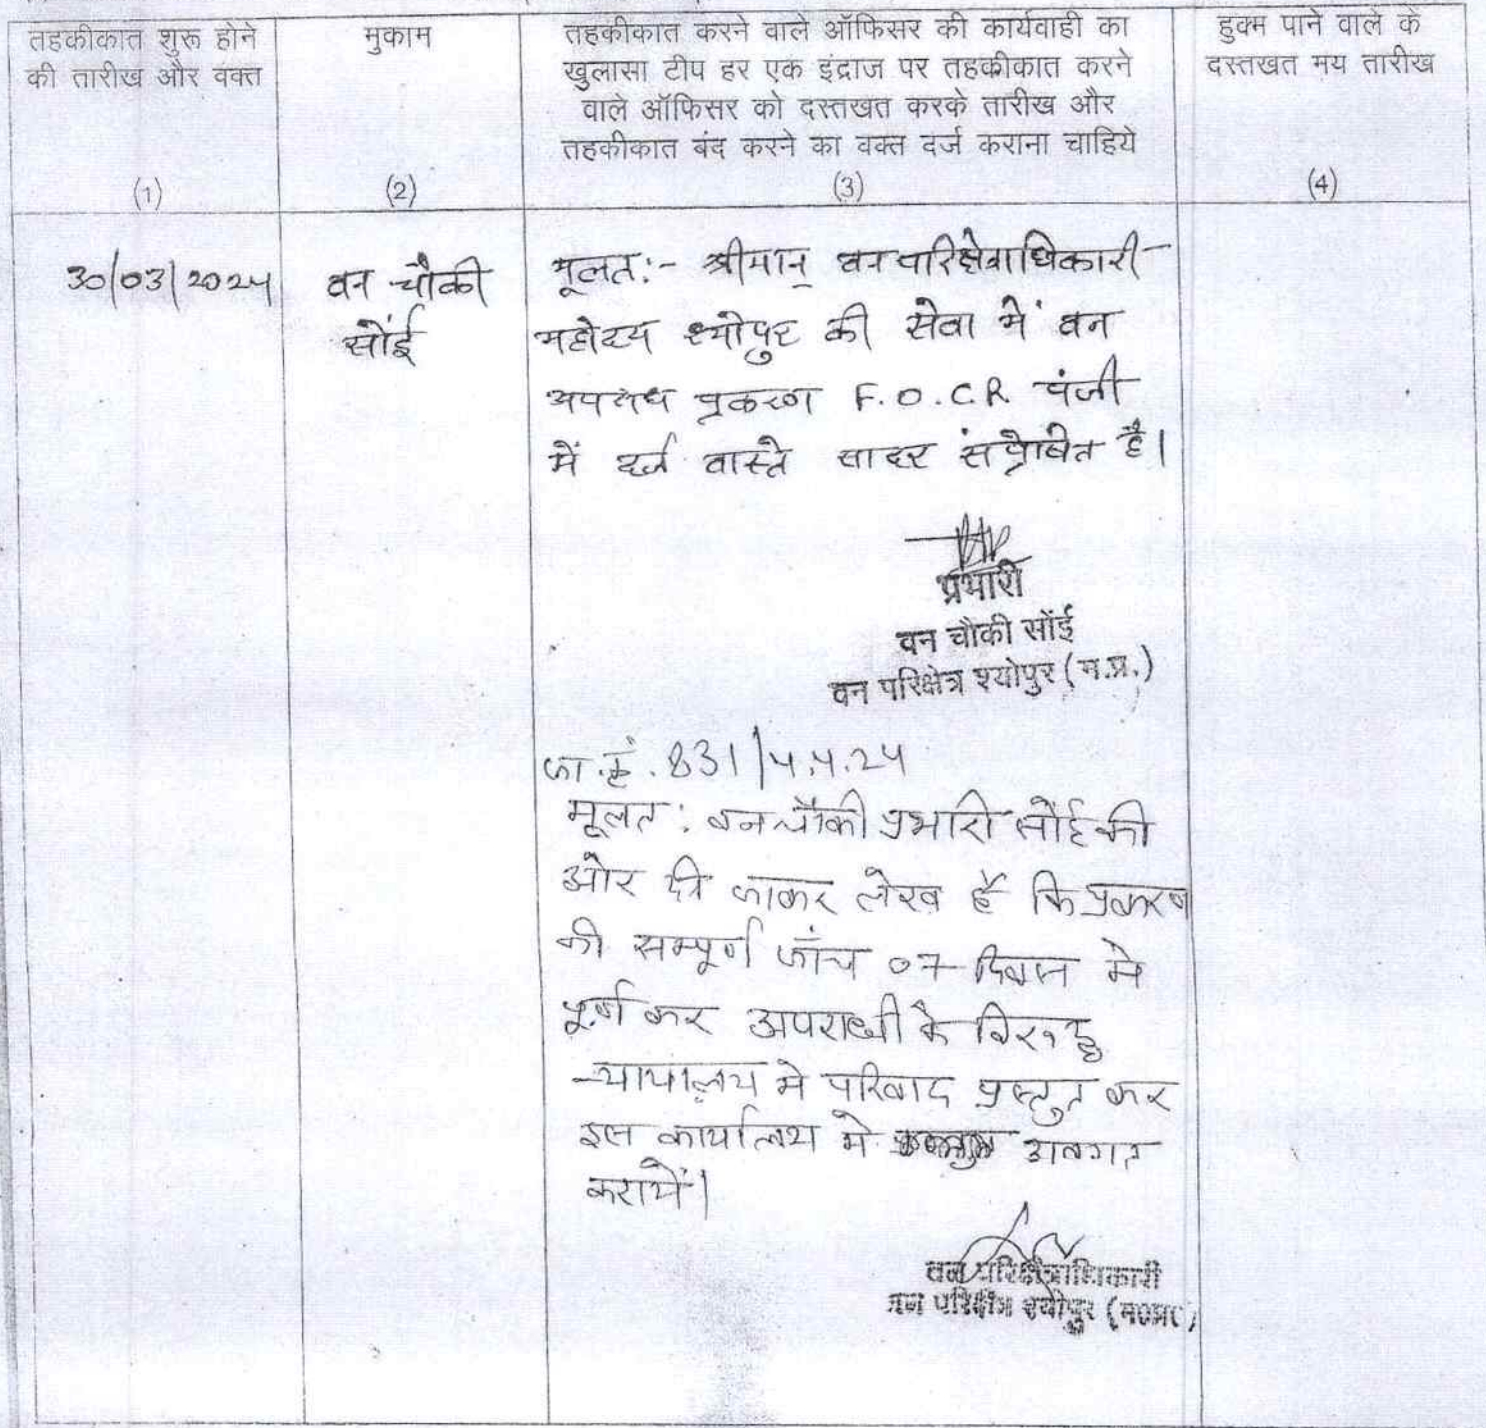 तहकीकात शुरू होने
की तारीख और वक्त
(1)
मुकाम
(2)
तहकीकात करने वाले ऑफिसर की कार्यवाही का
खुलासा टीप हर एक इंद्राज पर तहकीकात करने
वाले ऑफिसर को दस्तखत करके तारीख और
तहकीकात बंद करने का वक्त दर्ज कराना चाहिये
(3)
हुक्म पाने वाले के
दस्तखत मय तारीख
(4)
30/03/2024
वन चौकी
सोंई
मूलतः- श्रीमान् वन परिक्षेत्राधिकारी
महोदय श्योपुर की सेवा में वन
अपराध प्रकरण F.O.C.R. पंजी
में दर्ज वास्ते सादर संप्रेषित है।
प्रभारी
वन चौकी सोंई
वन परिक्षेत्र श्योपुर (म.प्र.)
जा.क्रं. 831/4.4.24
मूलत: वन चौकी प्रभारी सोंई की
ओर दी जाकर लेख है कि प्रकरण
की सम्पूर्ण जाँच 07 दिवस मे
पूर्ण कर अपराधी के विरुद्ध
न्यायालय मे परिवाद प्रस्तुत कर
इस कार्यालय मे अवगत
करायें।
वन परिक्षेत्राधिकारी
वन परिक्षेत्र श्योपुर (म०प्र०)